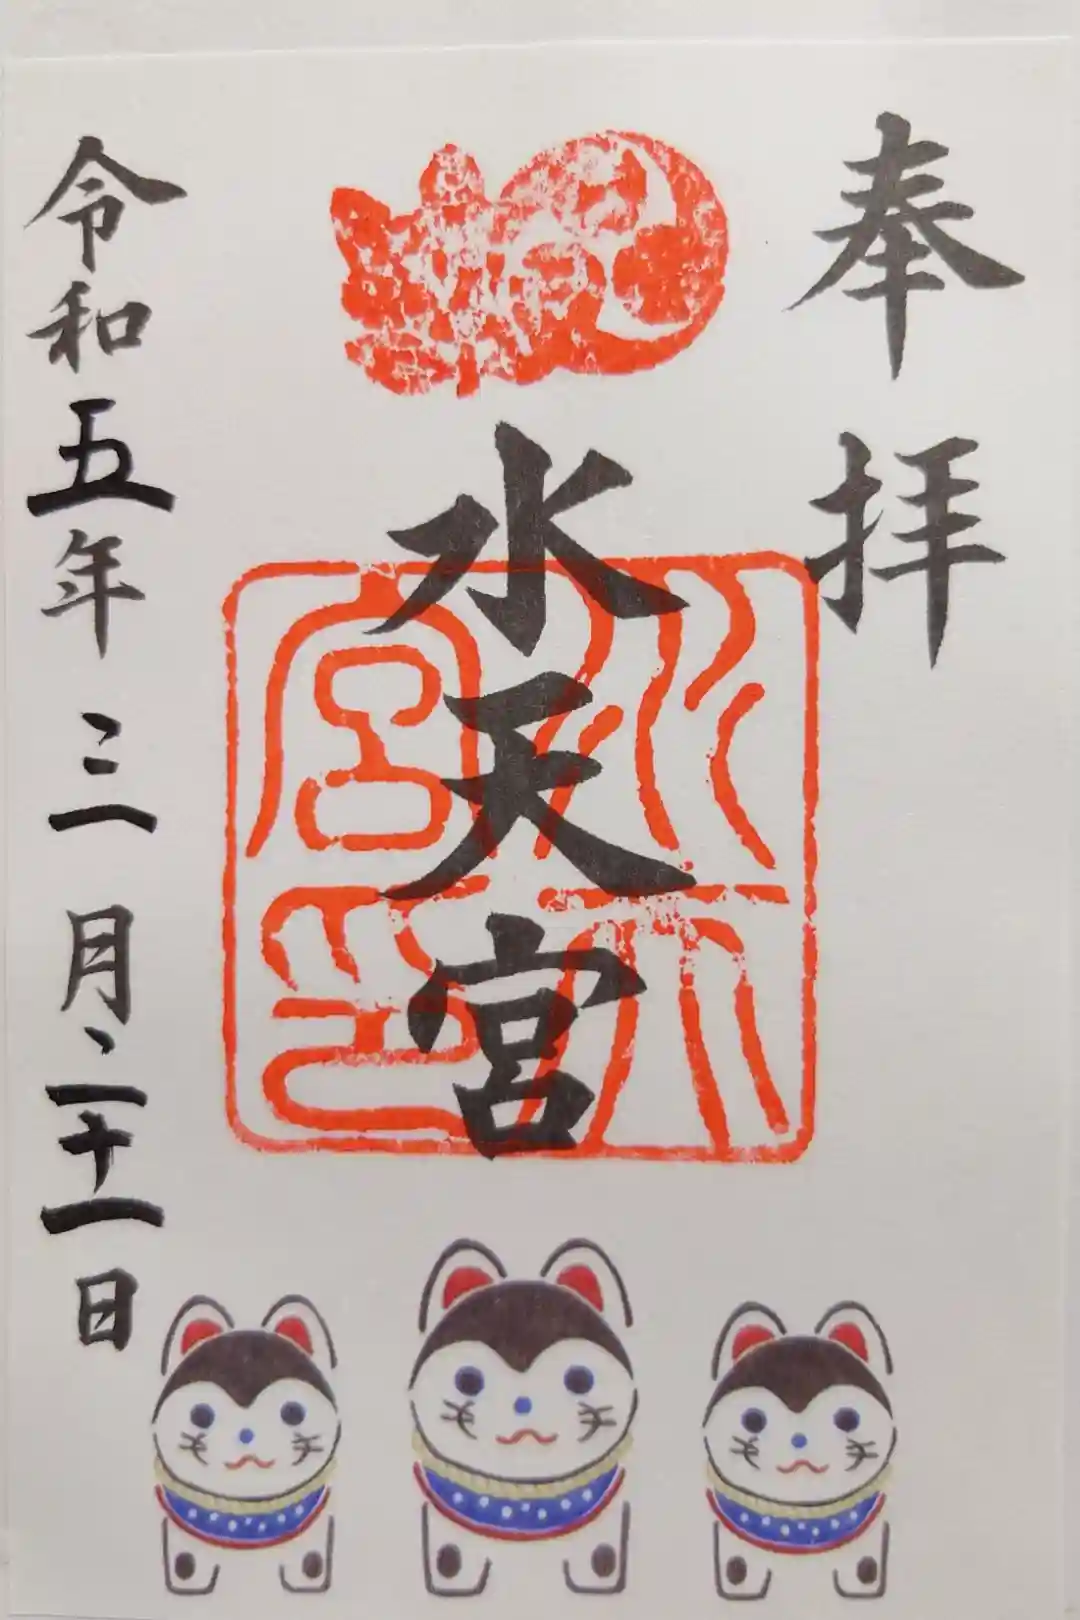 奉拝
水天宮
水天宮印
令和五年三月二十一日